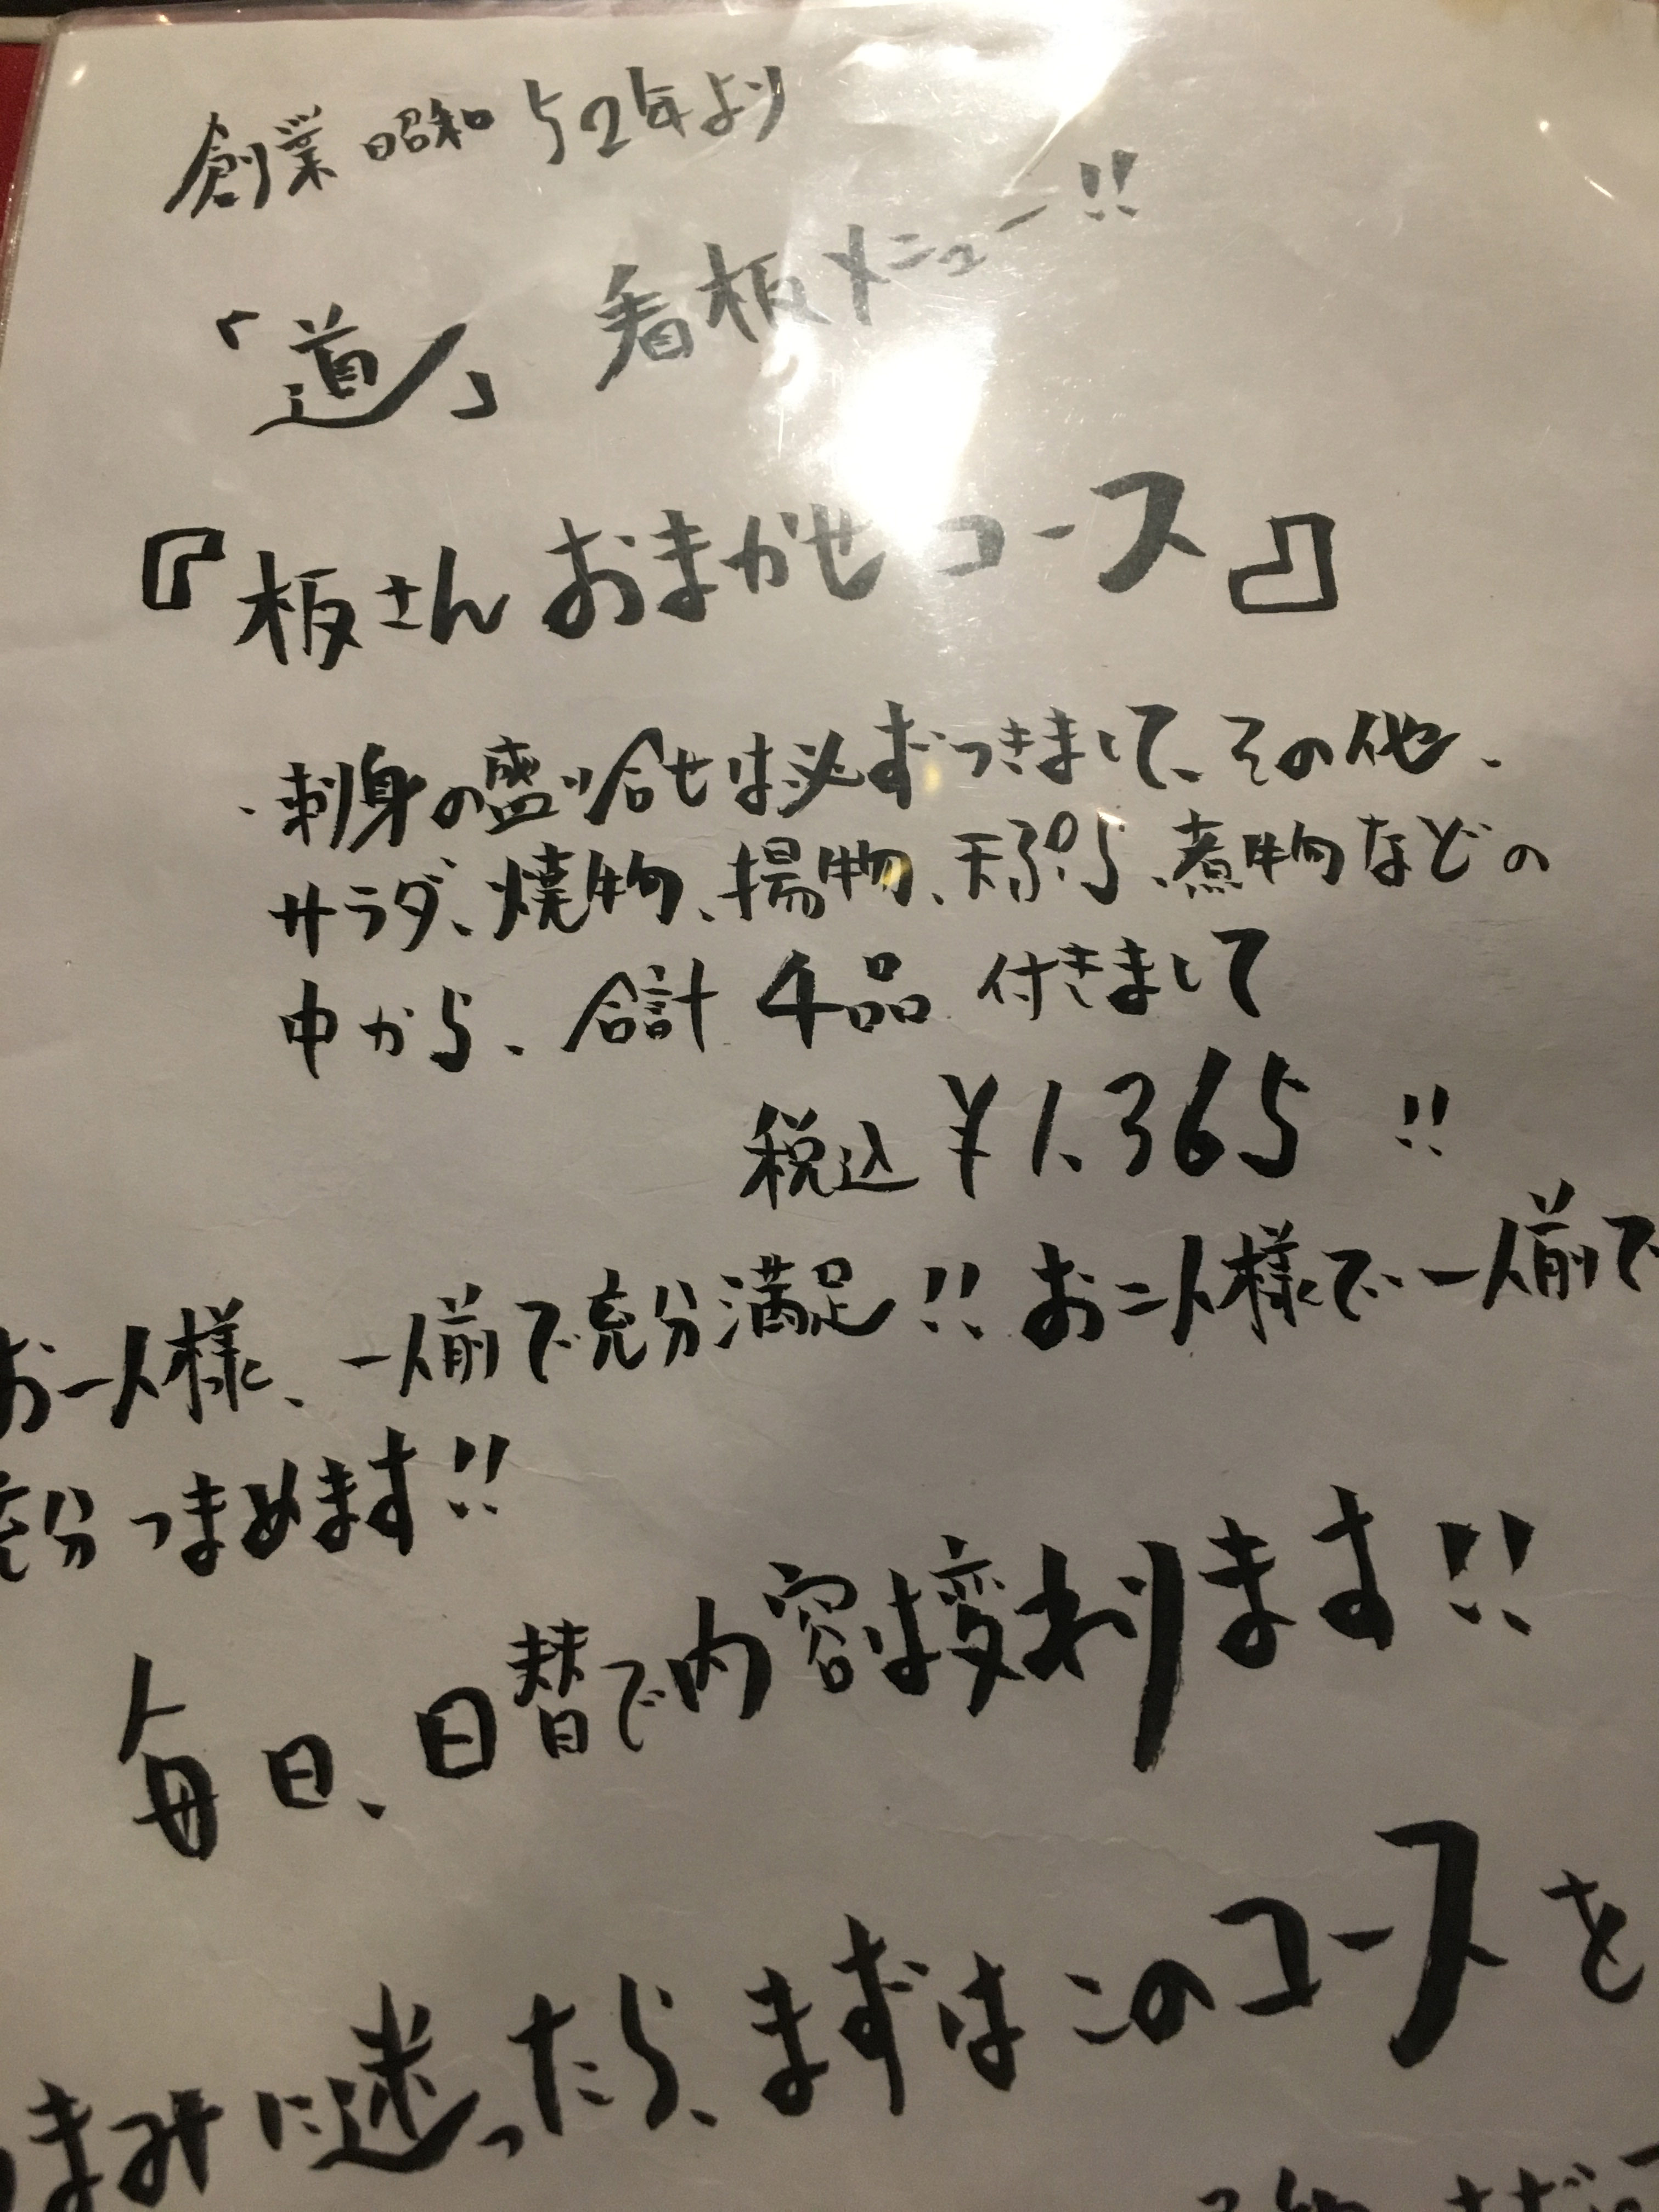 創業 昭和52年より
「道」 看板メニュー!!
『板さん おまかせ コース』
・刺身の盛り合せは必ずつきまして、その他、
サラダ、焼物、揚物、天ぷら、煮物などの
中から、合計 4品 付きまして
税込 ¥1.365 !!
お一人様、一人前で充分満足!! お二人様で一人前で
充分つまめます!!
毎日、日替で内容は変わります!!
まみに迷ったら、まずはこのコースを